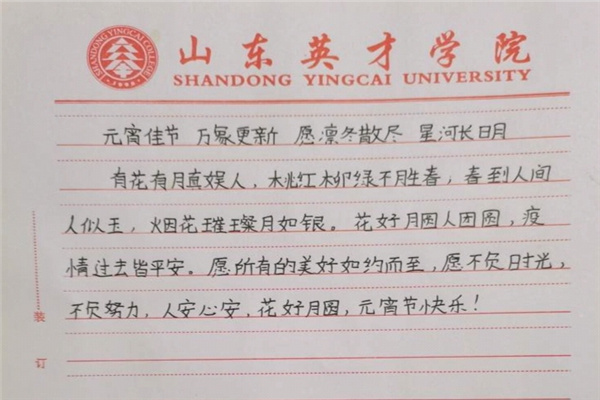 SHANDONG YINGCAI COLLEGE
山东英才学院
SHANDONG YINGCAI UNIVERSITY
元宵佳节 万象更新 愿凛冬散尽 星河长明
有花有月真娱人，桃红柳绿不胜春，春到人间
人似玉，烟花璀璨月如银。花好月圆人团圆，疫
情过去皆平安。愿所有的美好如约而至，愿不负时光，
不负努力，人安心安，花好月圆，元宵节快乐！
装
订